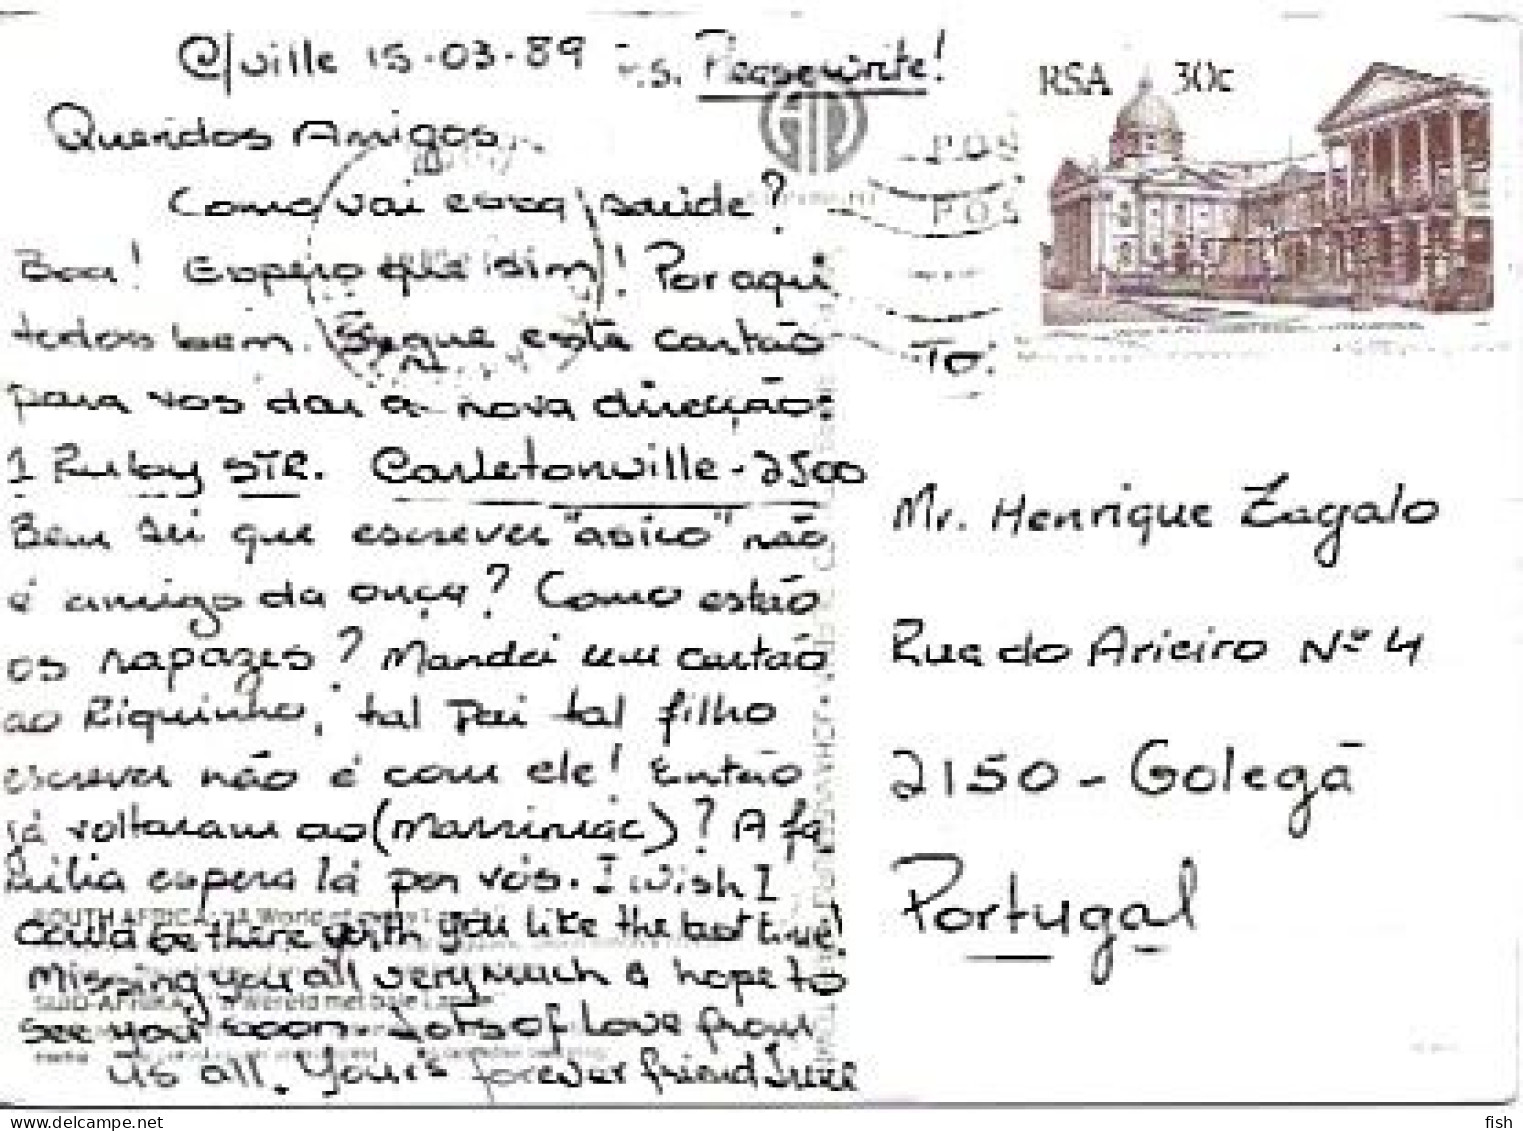 C/ville 15-03-89
P.S. Please write!
Queridos Amigos
Como vai essa saúde?
Boa! Espero que sim! Por aqui
todos bem. Segue este cartão
para vos dar a nova direcção:
1 Ruby STR. Carletonville - 2500
Bem sei que escrever "asico" não
é amigo da onça? Como estão
os rapazes? Mandei um cartão
ao Riquinho, tal Pai tal filho
escrever não é com ele! Então
já voltaram ao (Marriniac)? A fa
milia espera lá por vós. I wish I
could be there with you like the last time!
Missing you all very much & hope to
see you soon. Lots of love from
us all. Yours forever friend
RSA 30c
POS
To:
Mr. Henrique Zagalo
Rua do Arieiro Nº 4
2150 - Golegã
Portugal
SOUTH AFRICA: A World
SUID-AFRIKA: 'n Wêreld met baie
fish